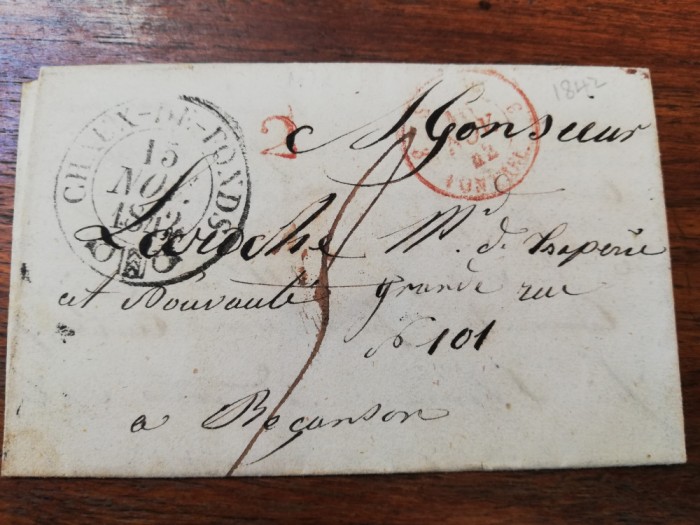 1842
CHAUX-DE-FONDS
15
NOV
1842
2
Monsieur
NOV
42
PONTARL
Laroche Md. de
et Nouvauté Grande rue
No 101
a Beçanson